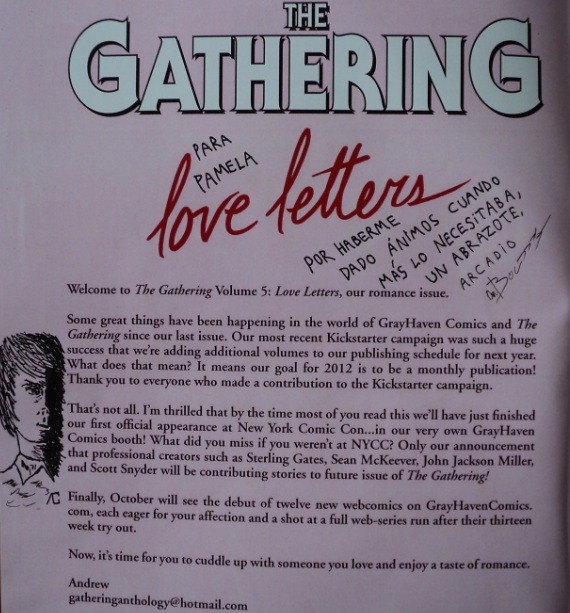 THE
GATHERING
PARA
PAMELA
love letters
POR HABERME
DADO ÁNIMOS CUANDO
MÁS LO NECESITABA,
UN ABRAZOTE,
ARCADIO
Welcome to The Gathering Volume 5: Love Letters, our romance issue.
Some great things have been happening in the world of GrayHaven Comics and The
Gathering since our last issue. Our most recent Kickstarter campaign was such a huge
success that we're adding additional volumes to our publishing schedule for next year.
What does that mean? It means our goal for 2012 is to be a monthly publication!
Thank you to everyone who made a contribution to the Kickstarter campaign.
That's not all. I'm thrilled that by the time most of you read this we'll have just finished
our first official appearance at New York Comic Con...in our very own GrayHaven
Comics booth! What did you miss if you weren't at NYCC? Only our announcement
that professional creators such as Sterling Gates, Sean McKeever, John Jackson Miller,
and Scott Snyder will be contributing stories to future issue of The Gathering!
Finally, October will see the debut of twelve new webcomics on GrayHavenComics.
com, each eager for your affection and a shot at a full web-series run after their thirteen
week try out.
Now, it's time for you to cuddle up with someone you love and enjoy a taste of romance.
Andrew
gatheringanthology@hotmail.com